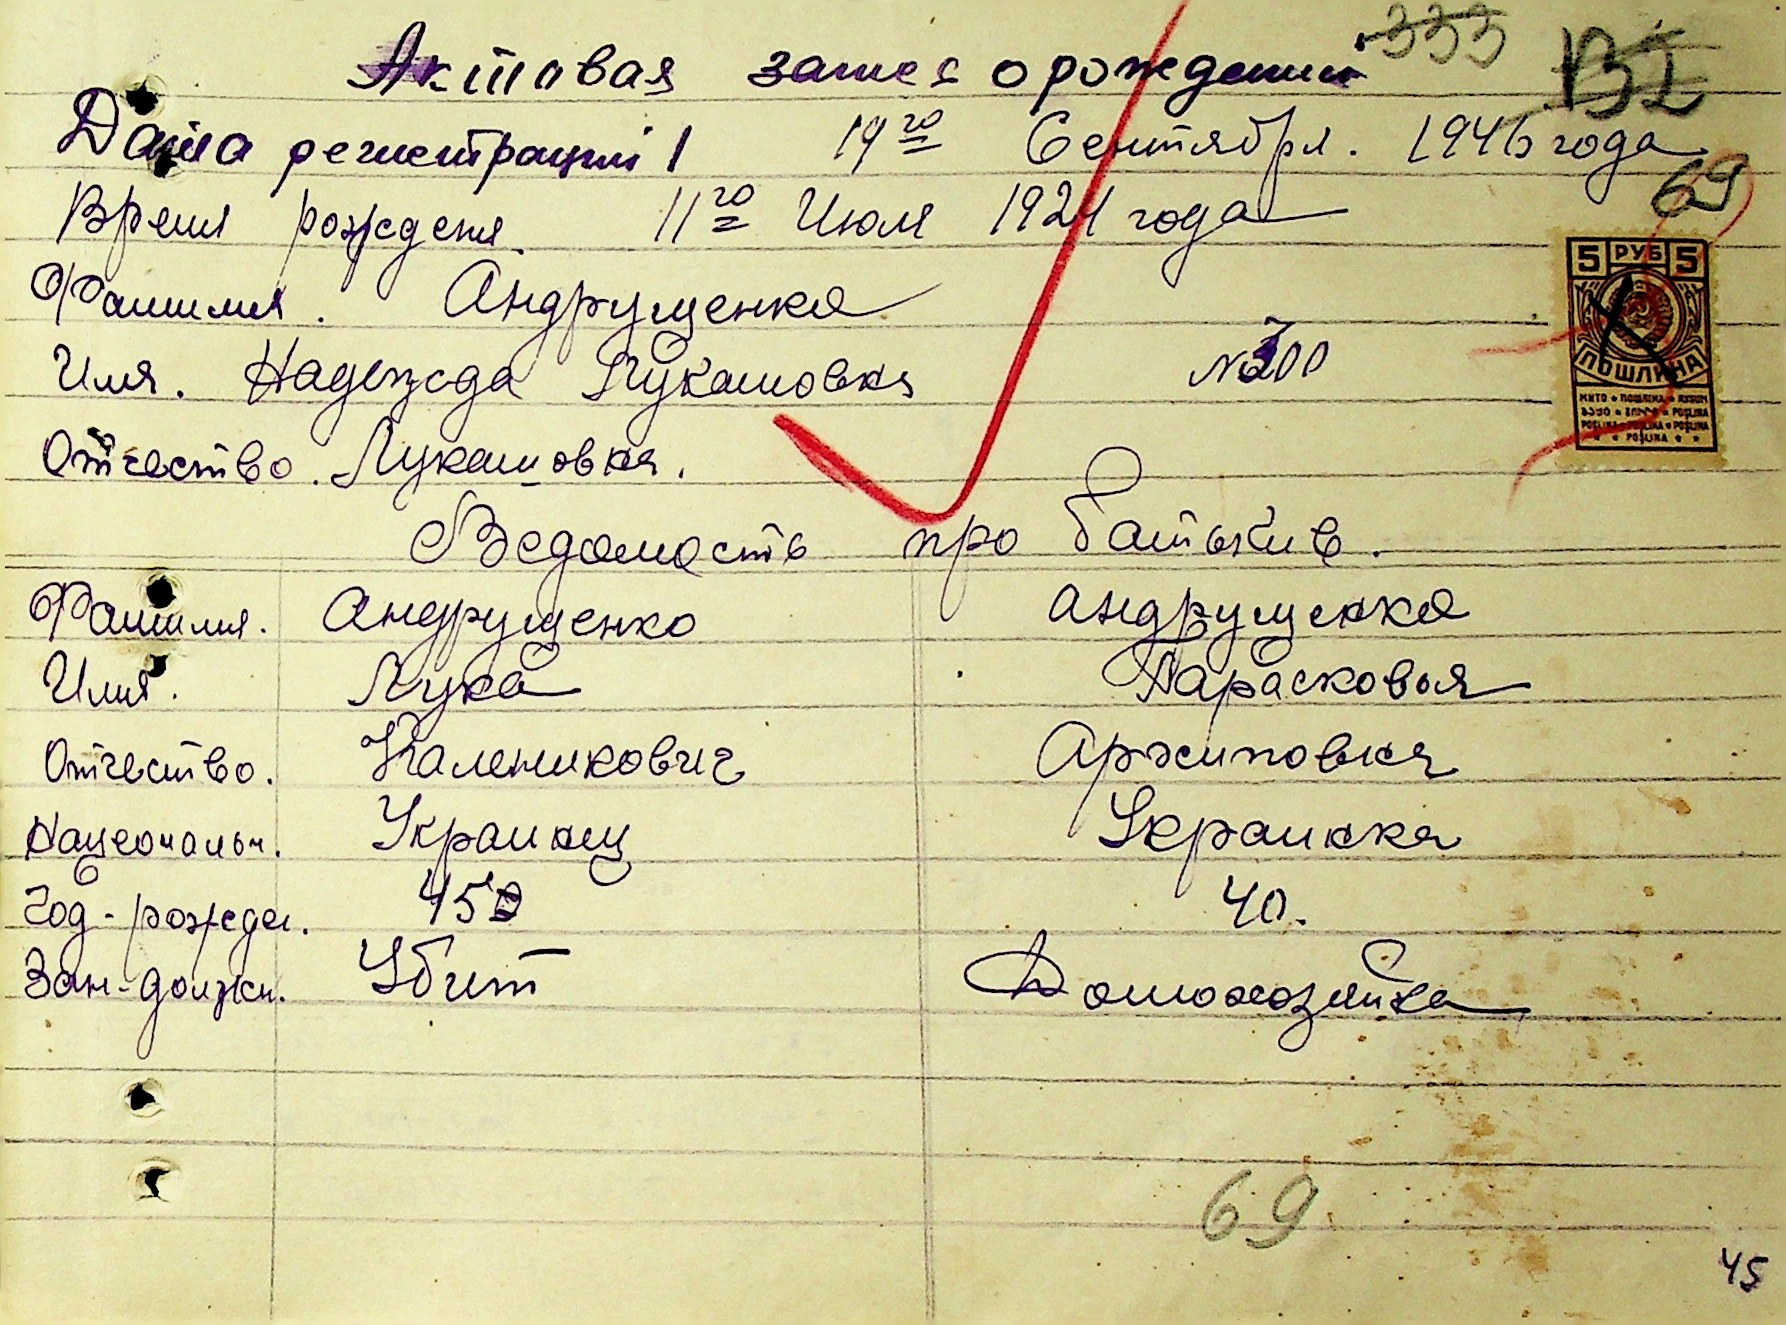 333 132
Актовая запис о рождении
Дата регистрации 19го Сентября. 1946 года
69
Время рожденя 11го Июля 1924 года
Фамилия. Андрущенко
5 РУБ 5
ПОШЛИНА
Имя. Надежда Лукашовня №300
Отчество. Лукашовня.
Ведомость про батькив.
Фамилия. Андрущенко Андрущенко
Имя. Лука Парасковья
Отчество. Каленикович Архиповня
Национальн. Украинец Украинка
Год-рожден. 45 40.
Зан-должн. Убит Домохозяйка
69
45